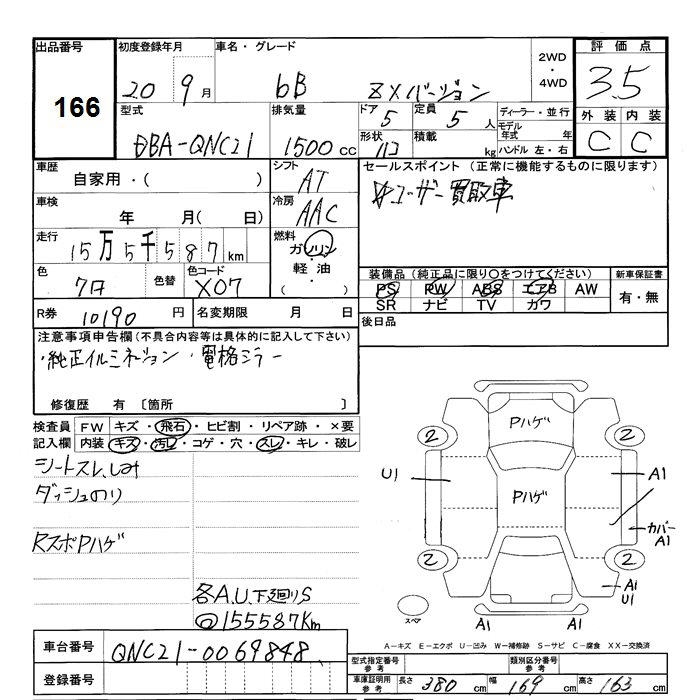 出品番号 初度登録年月 車名・グレード 2WD・4WD 評価点
166 20 9月 bB ZXバージョン 3.5
型式 排気量 ドア 定員 ディーラー・並行 外装 内装
DBA-QNC21 1500cc 5 5人 モデル年式 年 C C
形状 積載 kg ハンドル 左・右
車歴 シフト セールスポイント (正常に機能するものに限ります)
自家用・( ) AT ユーザー買取車
車検 冷房
年 月( 日) AAC
走行 燃料
15万5千587km ガソリン・軽油・( )
色 色替 色コード 装備品(純正品に限り○をつけてください) 新車保証書
クロ X07 PS PW ABS エアB AW 有・無
SR ナビ TV カワ
R券 10190円 名変期限 月 日 後日品
注意事項申告欄(不具合内容等は具体的に記入して下さい)
・純正イルミネーション ・電格ミラー
修復歴 有 〔箇所 〕
検査員 FW キズ・飛石・ヒビ割・リペア跡・×要
記入欄 内装 キズ・汚レ・コゲ・穴・スレ・キレ・破レ
シートスレ、しみ
ダッシュのり
RスポPハゲ
各A.U.下廻りS
@155587Km
Pハゲ
2 2
U1 Pハゲ A1
カバーA1
2 2
A1
U1
スペア A1 A1
A-キズ E-エクボ U-凹み W-補修跡 S-サビ C-腐食 XX-交換済
車台番号 QNC21-0069848
型式指定番号 参考 類別区分番号 参考
登録番号 車庫証明用 参考 長さ 380cm 幅 169cm 高さ 163cm